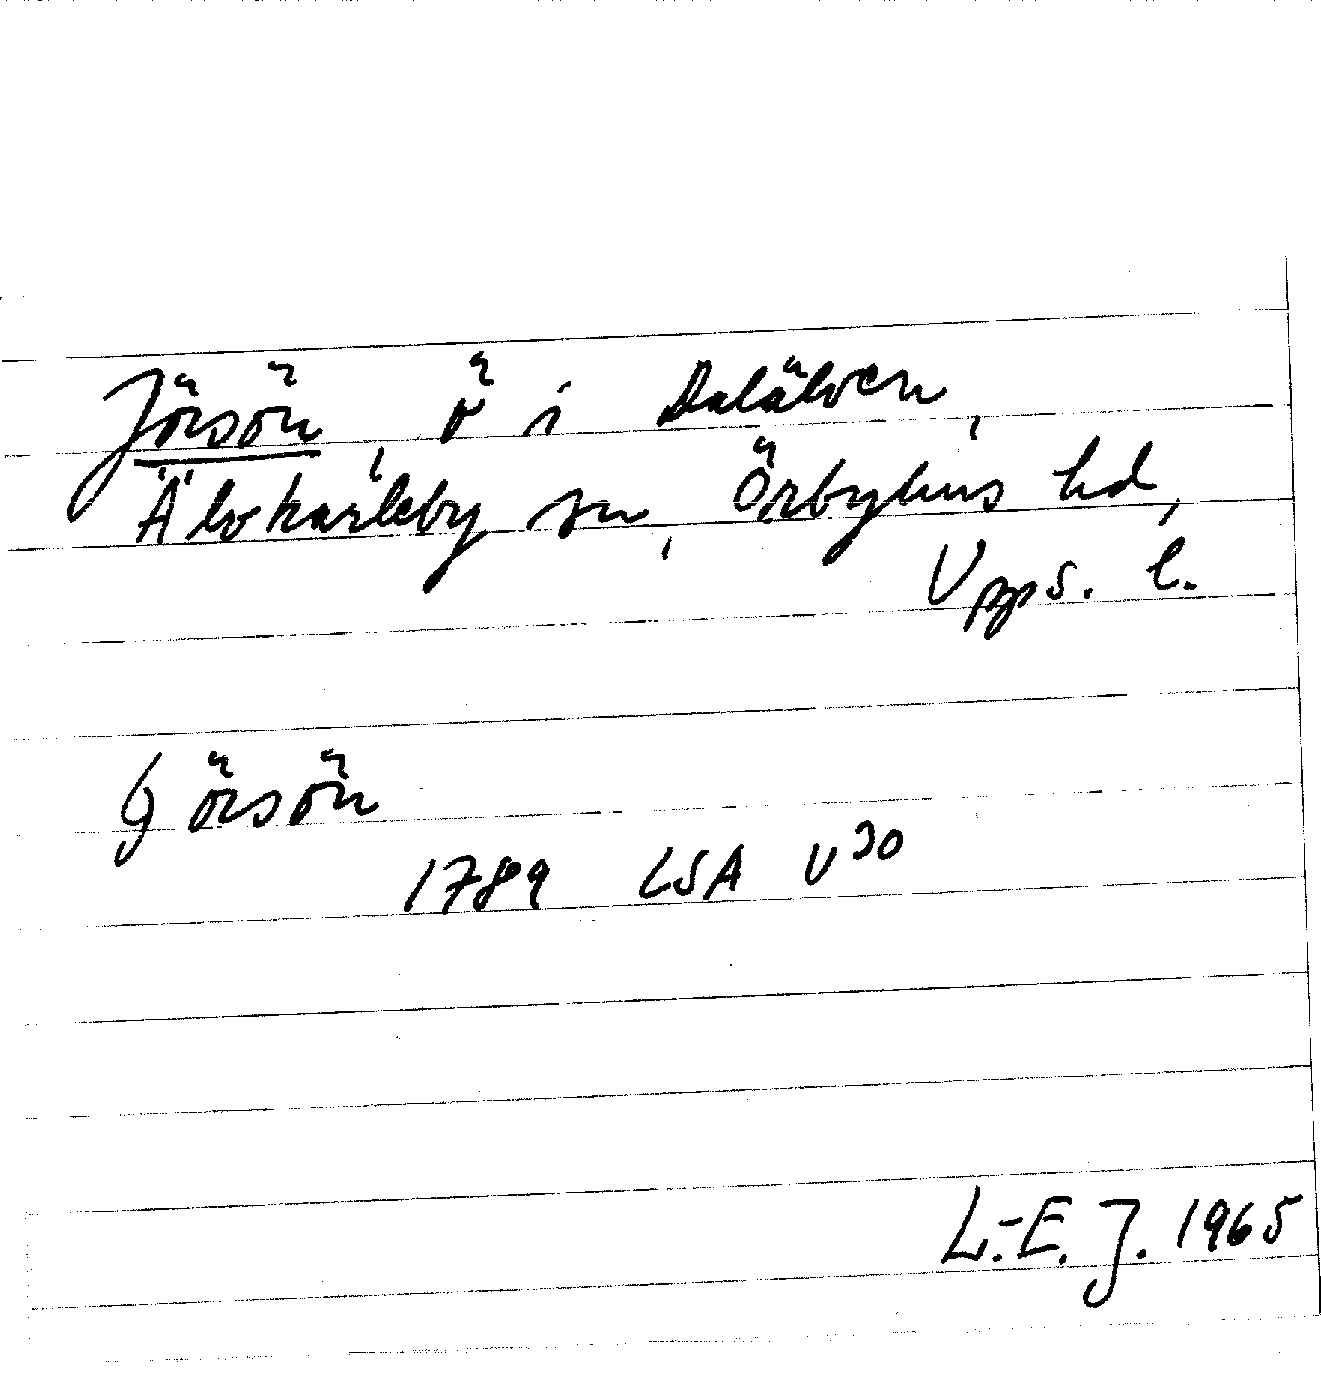 Jörsön, ö i Dalälven,
Älvkarleby sn, Örbyhus hd,
Upps. l.
Görsön
1789 LSA U 30
L.-E. J. 1965